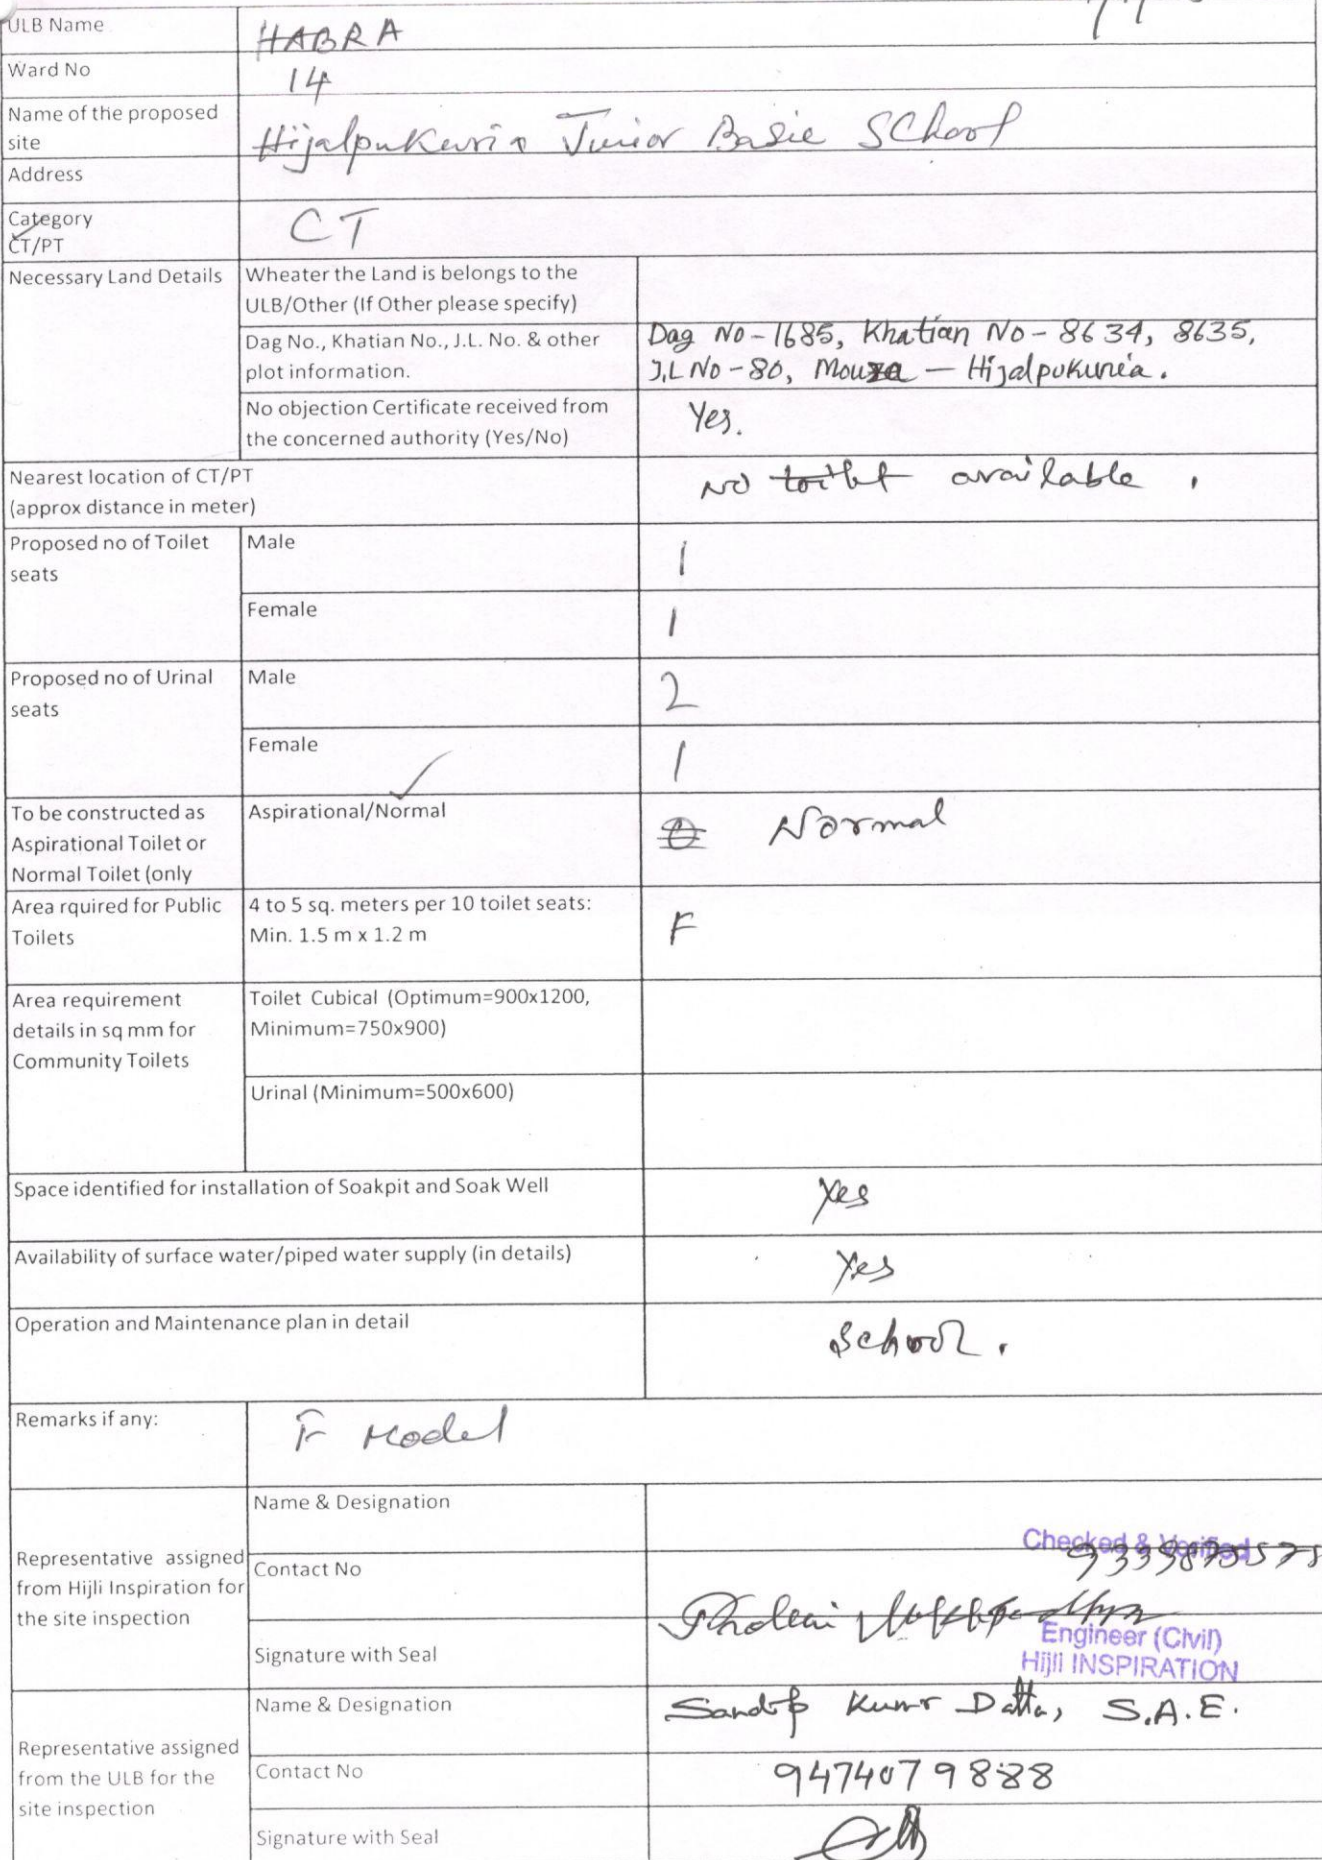 ULB Name
HABRA
Ward No
14
Name of the proposed
site
Hijalpukuria Junior Basic SChool
Address
Category
CT/PT
CT
Necessary Land Details
Wheater the Land is belongs to the
ULB/Other (If Other please specify)
Dag No., Khatian No., J.L. No. & other
plot information.
Dag No-1685, Khatian No-8634, 8635,
J.L No-80, Mouza — Hijalpukuria.
No objection Certificate received from
the concerned authority (Yes/No)
Yes.
Nearest location of CT/PT
(approx distance in meter)
NO toilet available .
Proposed no of Toilet
seats
Male
1
Female
1
Proposed no of Urinal
seats
Male
2
Female
1
To be constructed as
Aspirational Toilet or
Normal Toilet (only
Aspirational/Normal
Normal
Area rquired for Public
Toilets
4 to 5 sq. meters per 10 toilet seats:
Min. 1.5 m x 1.2 m
F
Area requirement
details in sq mm for
Community Toilets
Toilet Cubical (Optimum=900x1200,
Minimum=750x900)
Urinal (Minimum=500x600)
Space identified for installation of Soakpit and Soak Well
Yes
Availability of surface water/piped water supply (in details)
Yes
Operation and Maintenance plan in detail
School.
Remarks if any:
F Model
Representative assigned
from Hijli Inspiration for
the site inspection
Name & Designation
Checked & Verified
Contact No
Signature with Seal
Engineer (Civil)
Hijli INSPIRATION
Representative assigned
from the ULB for the
site inspection
Name & Designation
Sandip Kumr Datta, S.A.E.
Contact No
9474079888
Signature with Seal